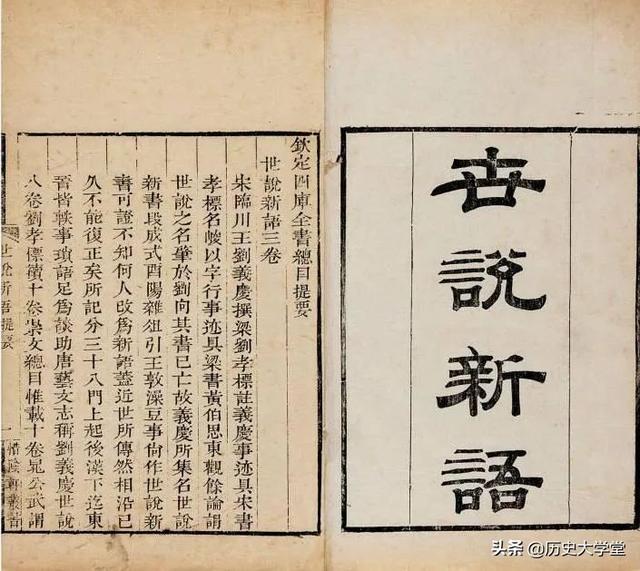 世說新語
欽定四庫全書總目提要
世說新語三卷
宋臨川王劉義慶撰梁劉孝標註義慶事迹具宋書
孝標名峻以字行事迹具梁書黃伯思東觀餘論謂
世說之名肇於劉向其書已亡故義慶所集名世說
新書段成式酉陽雜俎引王敦澡豆事尚作世說新
書可證不知何人改爲新語蓋近世所傳然相沿已
久不能復正矣所記分三十八門上起後漢下迄東
晉皆軼事瑣語足爲談助唐藝文志稱劉義慶世說
八卷劉孝標續十卷崇文總目惟載十卷晁公武謂
世說新語提要 一 惜陰軒叢書
头条 @历史大学堂